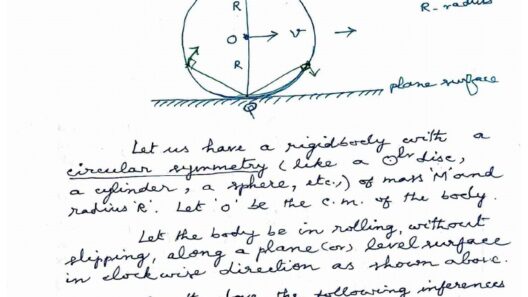 R
R - radius
O
v
R
plane surface
Q
Let us have a rigidbody with a
circular symmetry (like a Olar disc,
a cylinder, a sphere, etc.,) of mass 'M' and
radius 'R'. Let 'O' be the c.m. of the body.
Let the body be in rolling, without
slipping, along a plane (or) level surface
in clockwise direction as shown above.
the following inferences